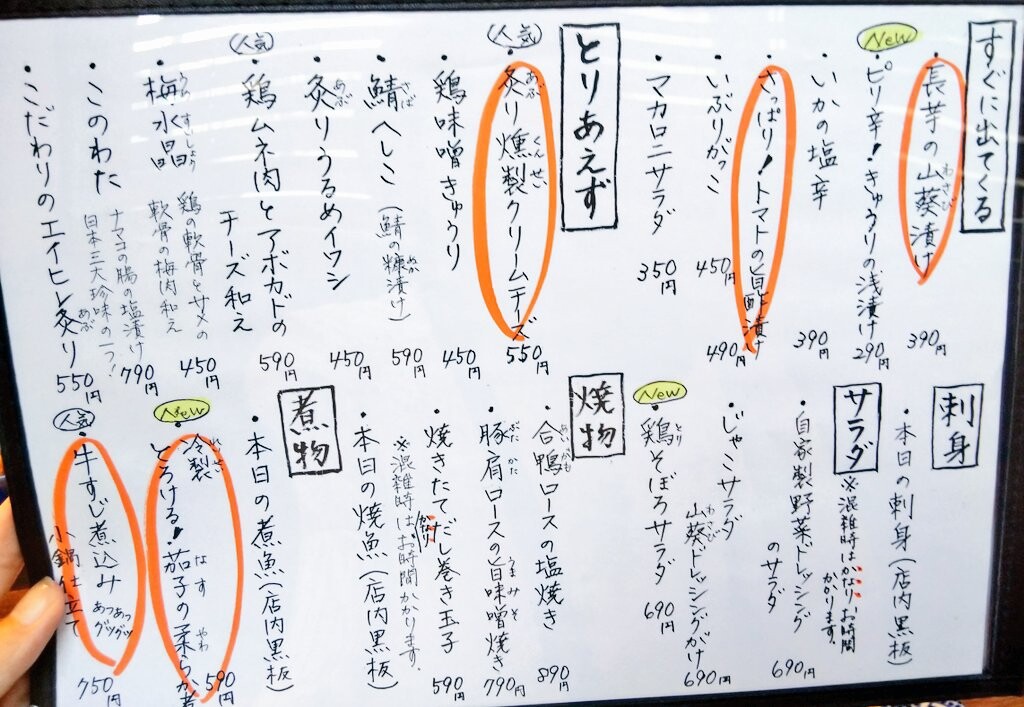 すぐに出てくる
・長芋の山葵漬け 390円
New
・ピリ辛!きゅうりの浅漬け 290円
・いかの塩辛 390円
・さっぱり!トマトの旨酢漬け 490円
・いぶりがっこ 450円
・マカロニサラダ 350円
とりあえず
人気
・炙り燻製クリームチーズ 550円
・鶏味噌きゅうり 450円
・鯖へしこ(鯖の糠漬け) 590円
・炙りうるめイワシ 450円
人気
・鶏ムネ肉とアボカドの
チーズ和え 590円
・梅水晶 鶏の軟骨とサメの
軟骨の梅肉和え 450円
・このわた ナマコの腸の塩漬け
日本三大珍味の一つ! 790円
・こだわりのエイヒレ炙り 550円
刺身
・本日の刺身(店内黒板)
サラダ
※混雑時はかなりお時間
かかります。
・自家製野菜ドレッシング
のサラダ 690円
・じゃこサラダ
山葵ドレッシングがけ 690円
New
・鶏そぼろサラダ 690円
焼物
・合鴨ロースの塩焼き 890円
・豚肩ロースの旨味噌焼き 790円
・焼きたてだし巻き玉子 590円
※混雑時はお時間かかります。
・本日の焼魚(店内黒板)
煮物
・本日の煮魚(店内黒板)
New
・冷製
とろける!茄子の柔らか煮 590円
人気
・牛すじ煮込み あつあつ
グツグツ
小鍋仕立て 750円